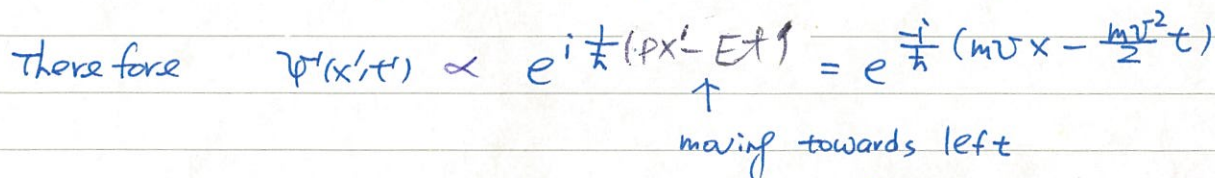 Therefore ψ'(x',t') ∝ e^{i 1/ħ (px' - Et)} = e^{-i/ħ (mvx - mv²/2 t)}
↑
moving towards left